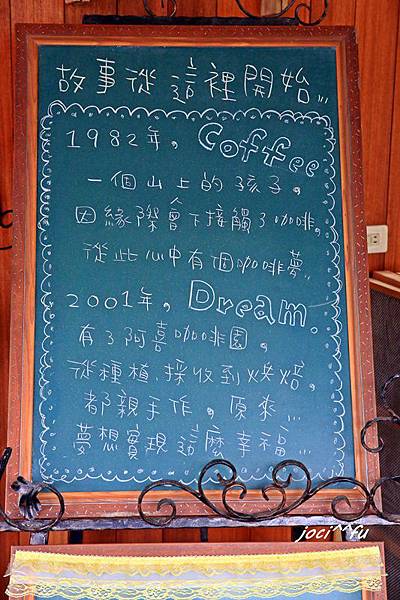 故事從這裡開始...
1982年，Coffee
一個山上的孩子，
因緣際會下接觸了咖啡，
從此心中有個咖啡夢...
2001年，Dream.
有了阿喜咖啡園，
從種植、採收到烘焙，
都親手作，原來...
夢想實現這麼幸福...
joci~fu